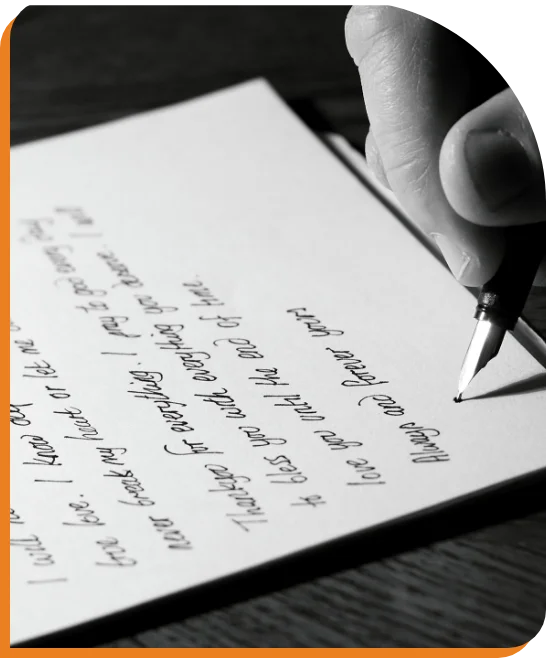 I will
true love. I know
never break my heart or let me
Thankyou for everything. I pray to god every day
to bless you with everything you desire. I will
love you until the end of time.
Always and forever yours